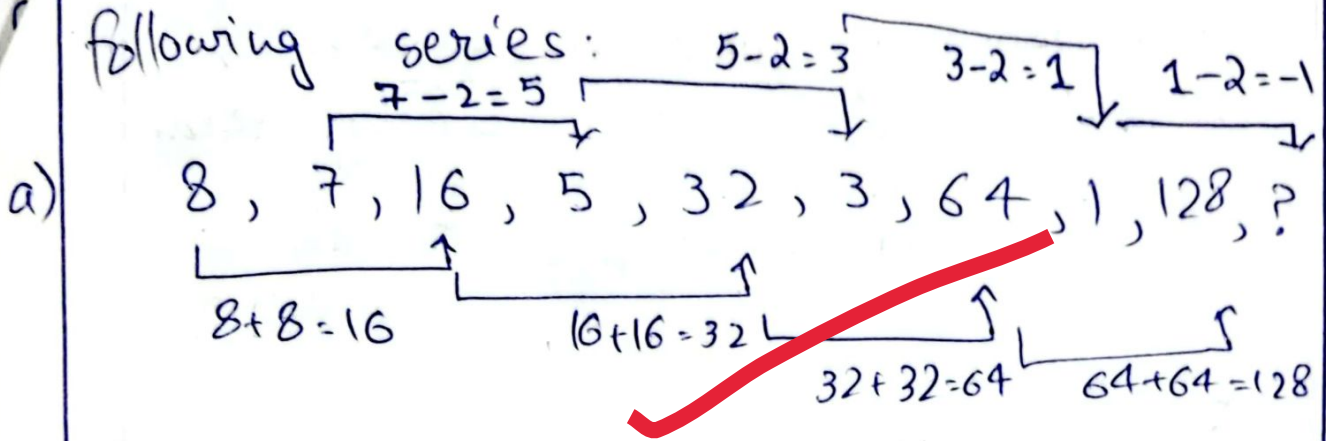 following series:
7-2=5 5-2=3 3-2=1 1-2=-1
a) 8, 7, 16, 5, 32, 3, 64, 1, 128, ?
8+8=16 16+16=32 32+32=64 64+64=128